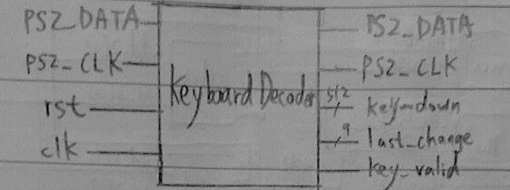 PS2_DATA
PS2_CLK
rst
clk
Keyboard Decoder
PS2_DATA
PS2_CLK
512
key_down
9
last_change
key_valid